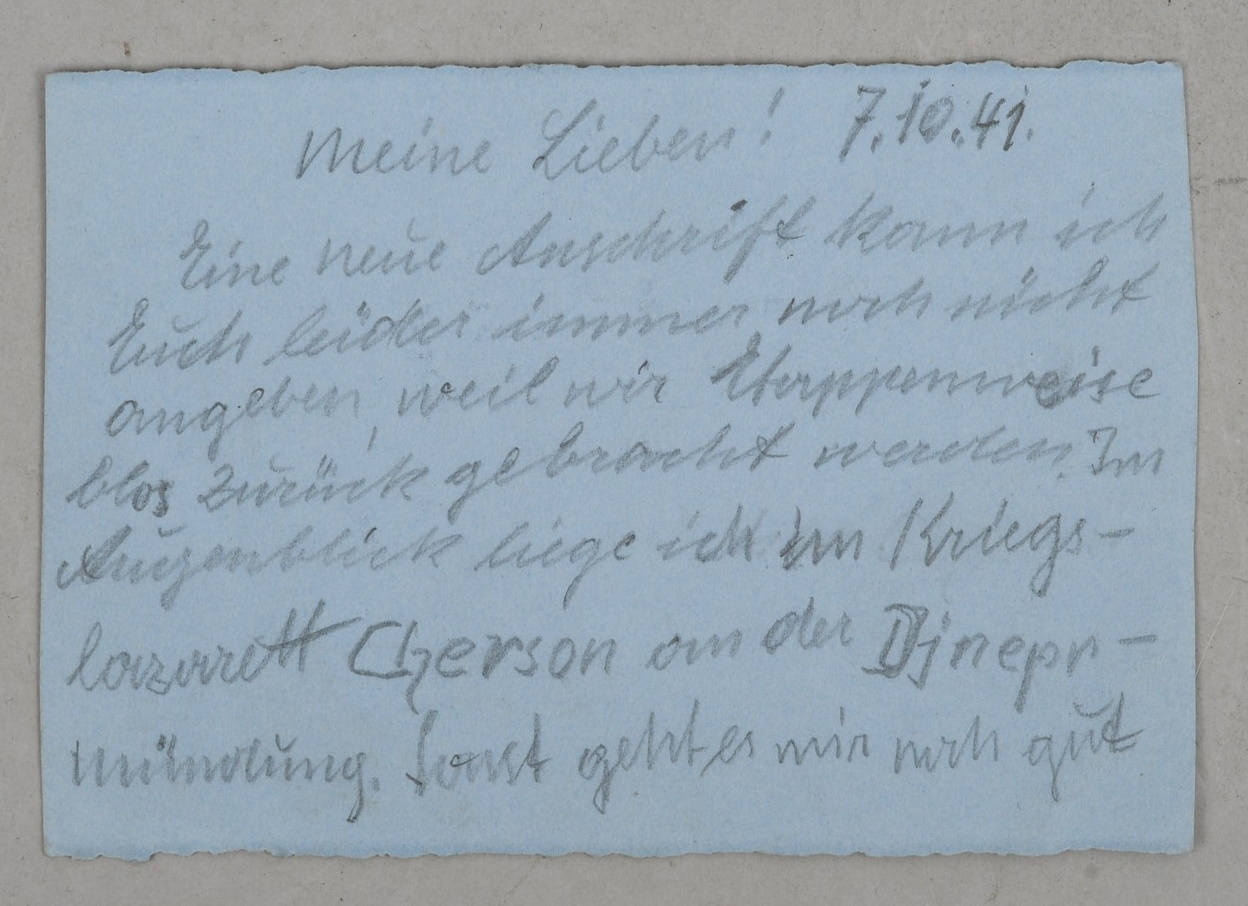 Meine Lieben! 7.10.41.
Eine neue Anschrift kann ich
Euch leider immer noch nicht
angeben, weil wir Etappenweise
blos zurück gebracht werden. Im
Augenblick liege ich im Kriegs-
lazarett Cherson an der Djnepr-
mündung. Sonst geht es mir noch gut